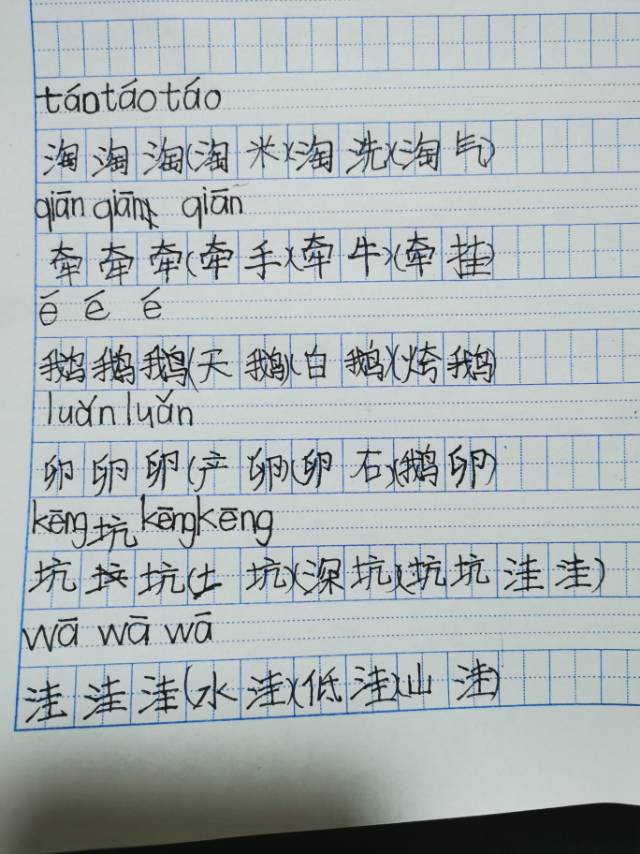 táo táo táo
淘淘淘(淘米)(淘洗)(淘气)
qiān qiān qiān
牵牵牵(牵手)(牵牛)(牵挂)
é é é
鹅鹅鹅(天鹅)(白鹅)(烤鹅)
luǎn luǎn
卵卵卵(产卵)(卵石)(鹅卵)
kēng坑kēng kēng
坑坑坑(土坑)(深坑)(坑坑洼洼)
wā wā wā
洼洼洼(水洼)(低洼)(山洼)